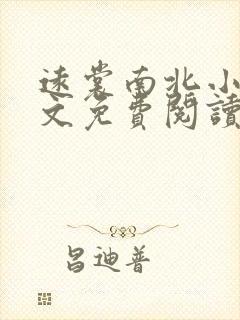 遠裳南北小
文免費閱讀
昌迪普